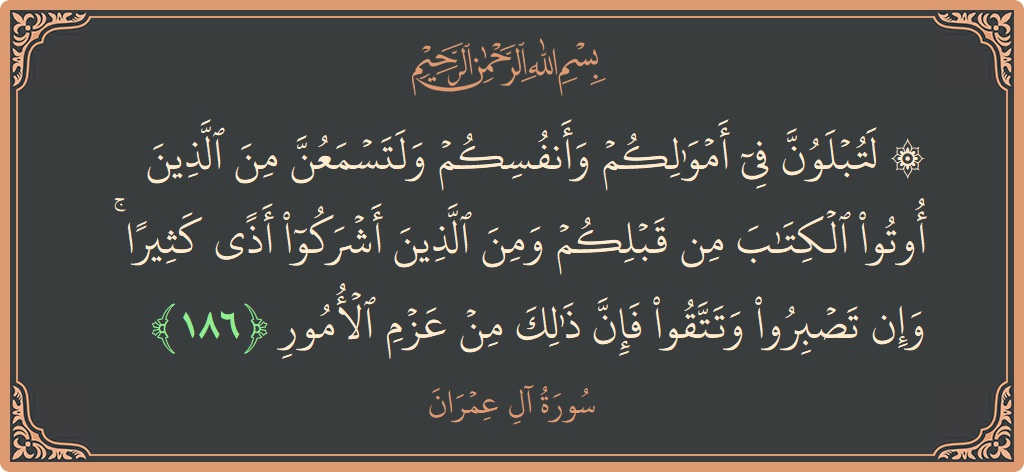 بِسْمِ اللَّهِ الرَّحْمَٰنِ الرَّحِيمِ
۞ لَتُبْلَوُنَّ فِىٓ أَمْوَٰلِكُمْ وَأَنفُسِكُمْ وَلَتَسْمَعُنَّ مِنَ ٱلَّذِينَ
أُوتُوا۟ ٱلْكِتَـٰبَ مِن قَبْلِكُمْ وَمِنَ ٱلَّذِينَ أَشْرَكُوٓا۟ أَذًى كَثِيرًا ۚ
وَإِن تَصْبِرُوا۟ وَتَتَّقُوا۟ فَإِنَّ ذَٰلِكَ مِنْ عَزْمِ ٱلْأُمُورِ ﴿١٨٦﴾
سُورَةُ آلِ عِمْرَانَ